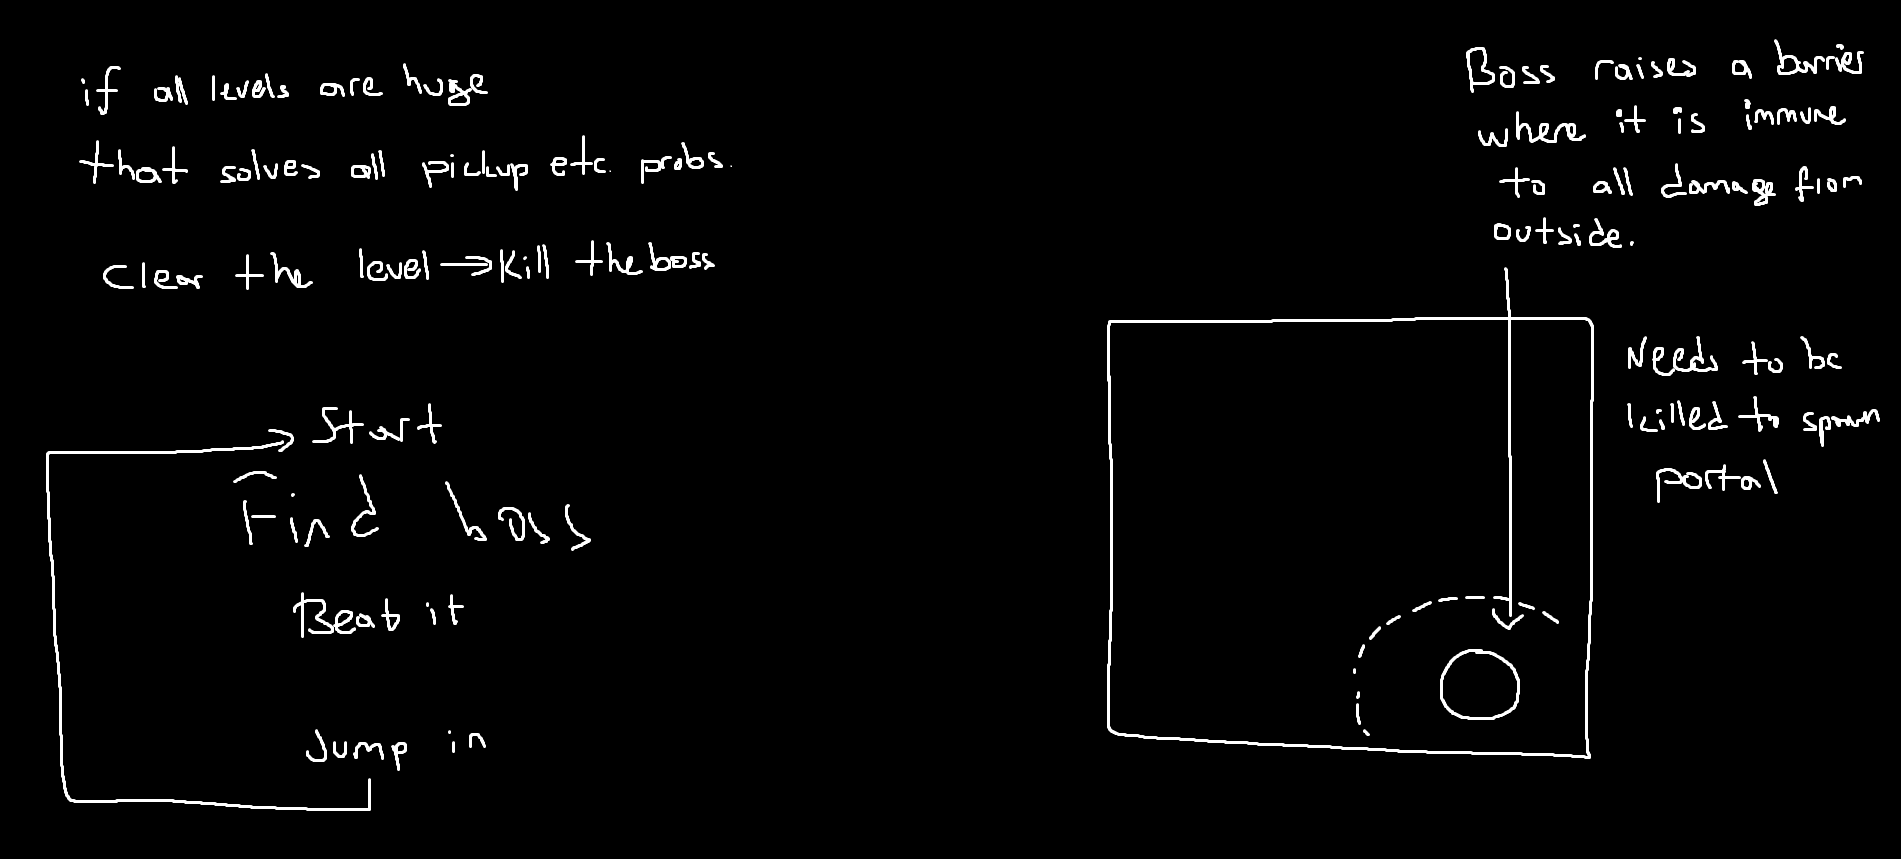 if all levels are huge
that solves all pickup etc. probs.
Clear the level → Kill the boss
Start
Find boss
Beat it
Jump in
Boss raises a barrier
where it is immune
to all damage from
outside.
Needs to be
killed to spawn
portal